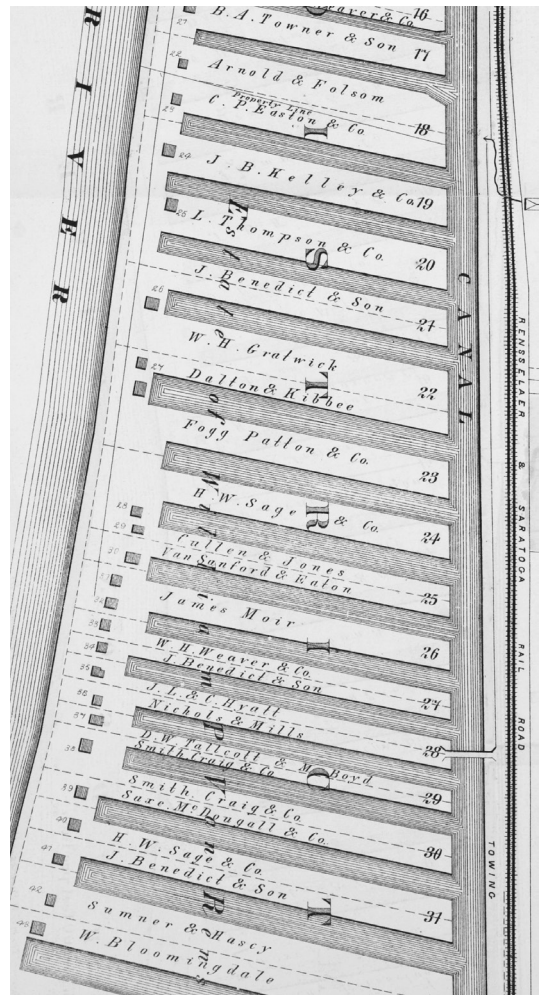 16
B. A. Towner & Son
17
22
Arnold & Folsom
Property Line
23
C. P. Easton & Co
18
24
J. B. Kelley & Co.
19
25
L. Thompson & Co.
20
J. Benedict & Son
21
26
W. H. Gratwick
22
27
Dalton & Kibbee
Fogg Patton & Co.
23
H. W. Sage & Co.
24
28
29
Cullen & Jones
30
Van Sanford & Eaton
25
James Moir
26
W. H. Weaver & Co.
34
J. Benedict & Son
27
35
J. L. & C. Hyatt
36
Nichols & Mills
28
37
D. W. Tallcott & M. Boyd
38
Smith, Craig & Co
29
Smith, Craig & Co.
39
Saxe. Mc.Dougall & Co.
30
40
H. W. Sage & Co.
41
J. Benedict & Son
31
42
Sumner & Hascy
43
W. Bloomingdale
RIVER
ISTRICT
Estate of William P. Van Rens
CANAL
TOWING
RENSSELAER & SARATOGA RAIL ROAD